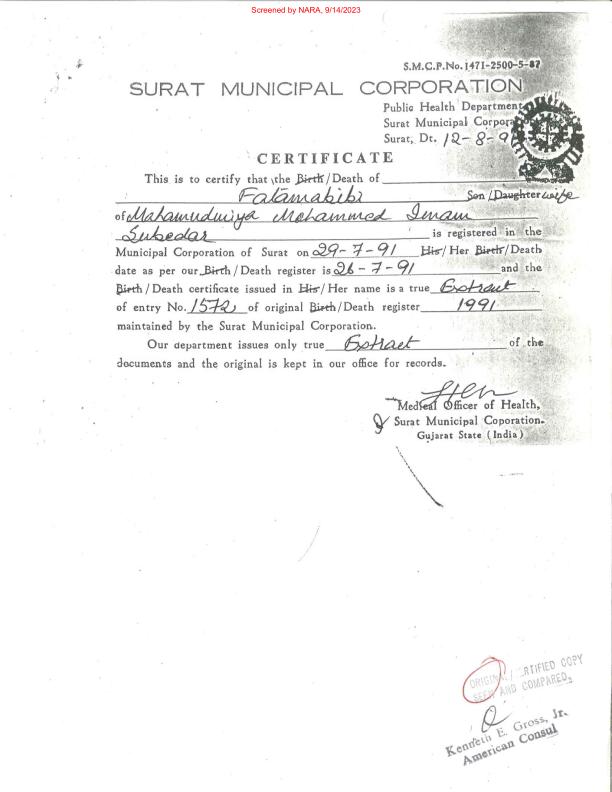 Screened by NARA, 9/14/2023
S.M.C.P.No.1471-2500-5-87
SURAT MUNICIPAL CORPORATION
Public Health Department
Surat Municipal
Surat, Dt. 12-8-9
CERTIFICATE
This is to certify that the Birth/Death of
Fatamabibi Son/Daughter wife
of Mahamudmiya Mohammed Imam
Subedar is registered in the
Municipal Corporation of Surat on 29-7-91 His/Her Birth/Death
date as per our Birth/Death register is 26-7-91 and the
Birth/Death certificate issued in His/Her name is a true Extract
of entry No. 1572, of original Birth/Death register 1991
maintained by the Surat Municipal Corporation.
Our department issues only true Extract of the
documents and the original is kept in our office for records.
Medical Officer of Health,
Surat Municipal Coporation.
Gujarat State (India)
ORIGINAL/CERTIFIED COPY
SEEN AND COMPARED.
Kenneth E. Gross, Jr.
American Consul